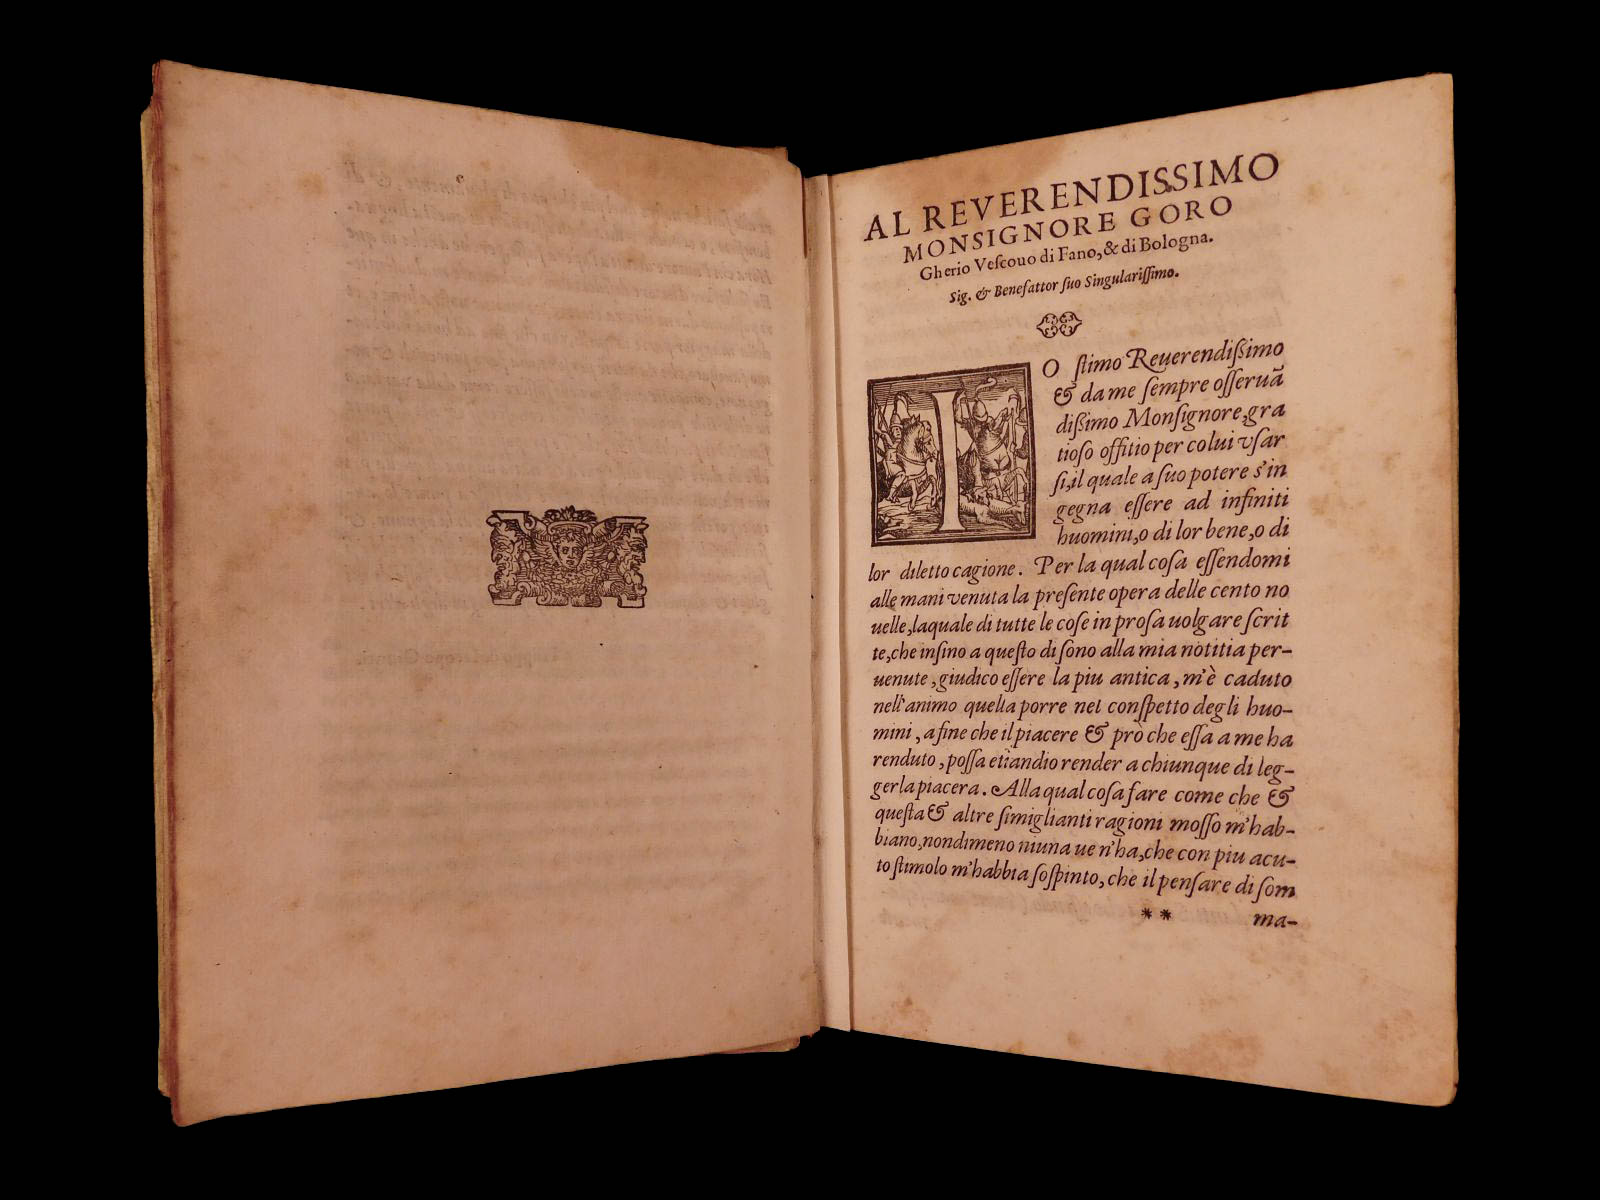 AL REVERENDISSIMO
MONSIGNORE GORO
Gherio Veſcouo di Fano, & di Bologna.
Sig. & Benefattor ſuo Singulariſſimo.
IO ſtimo Reuerendiſsimo
& da me ſempre oſſeruā
diſsimo Monſignore, gra
tioſo offitio per colui vſar
ſi, il quale a ſuo potere s'in
gegna eſſere ad infiniti
huomini, o di lor bene, o di
lor diletto cagione. Per la qual coſa eſſendomi
alle mani venuta la preſente opera delle cento no
uelle, laquale di tutte le coſe in proſa uolgare ſcrit
te, che inſino a queſto di ſono alla mia notitia per-
uenute, giudico eſſere la piu antica, m'è caduto
nell'animo quella porre nel conſpetto degli huo-
mini, a fine che il piacere & prò che eſſa a me ha
renduto, poſſa etiandio render a chiunque di leg-
gerla piacera. Alla qual coſa fare come che &
queſta & altre ſimiglianti ragioni moſſo m'hab-
biano, nondimeno niuna ue n'ha, che con piu acu-
to ſtimolo m'habbia ſoſpinto, che il penſare di ſom
** ma-